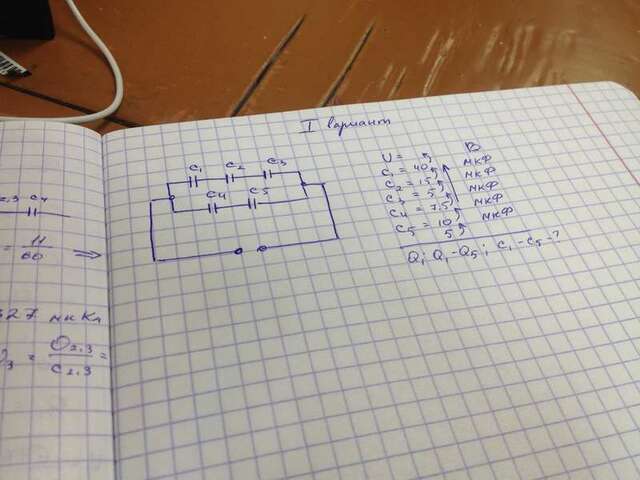 I вариант
C₁ C₂ C₃
C₄ C₅
U = В
C₁ = 40 мкФ
C₂ = 15 мкФ
C₃ = 5 мкФ
C₄ = 7,5 мкФ
C₅ = 10 мкФ
5
Q; Q₁-Q₅; C₁-C₅-?
2,3 C₄
= 11/60 ⇒
327 мкКл
= Q₂,₃/C₂,₃ =